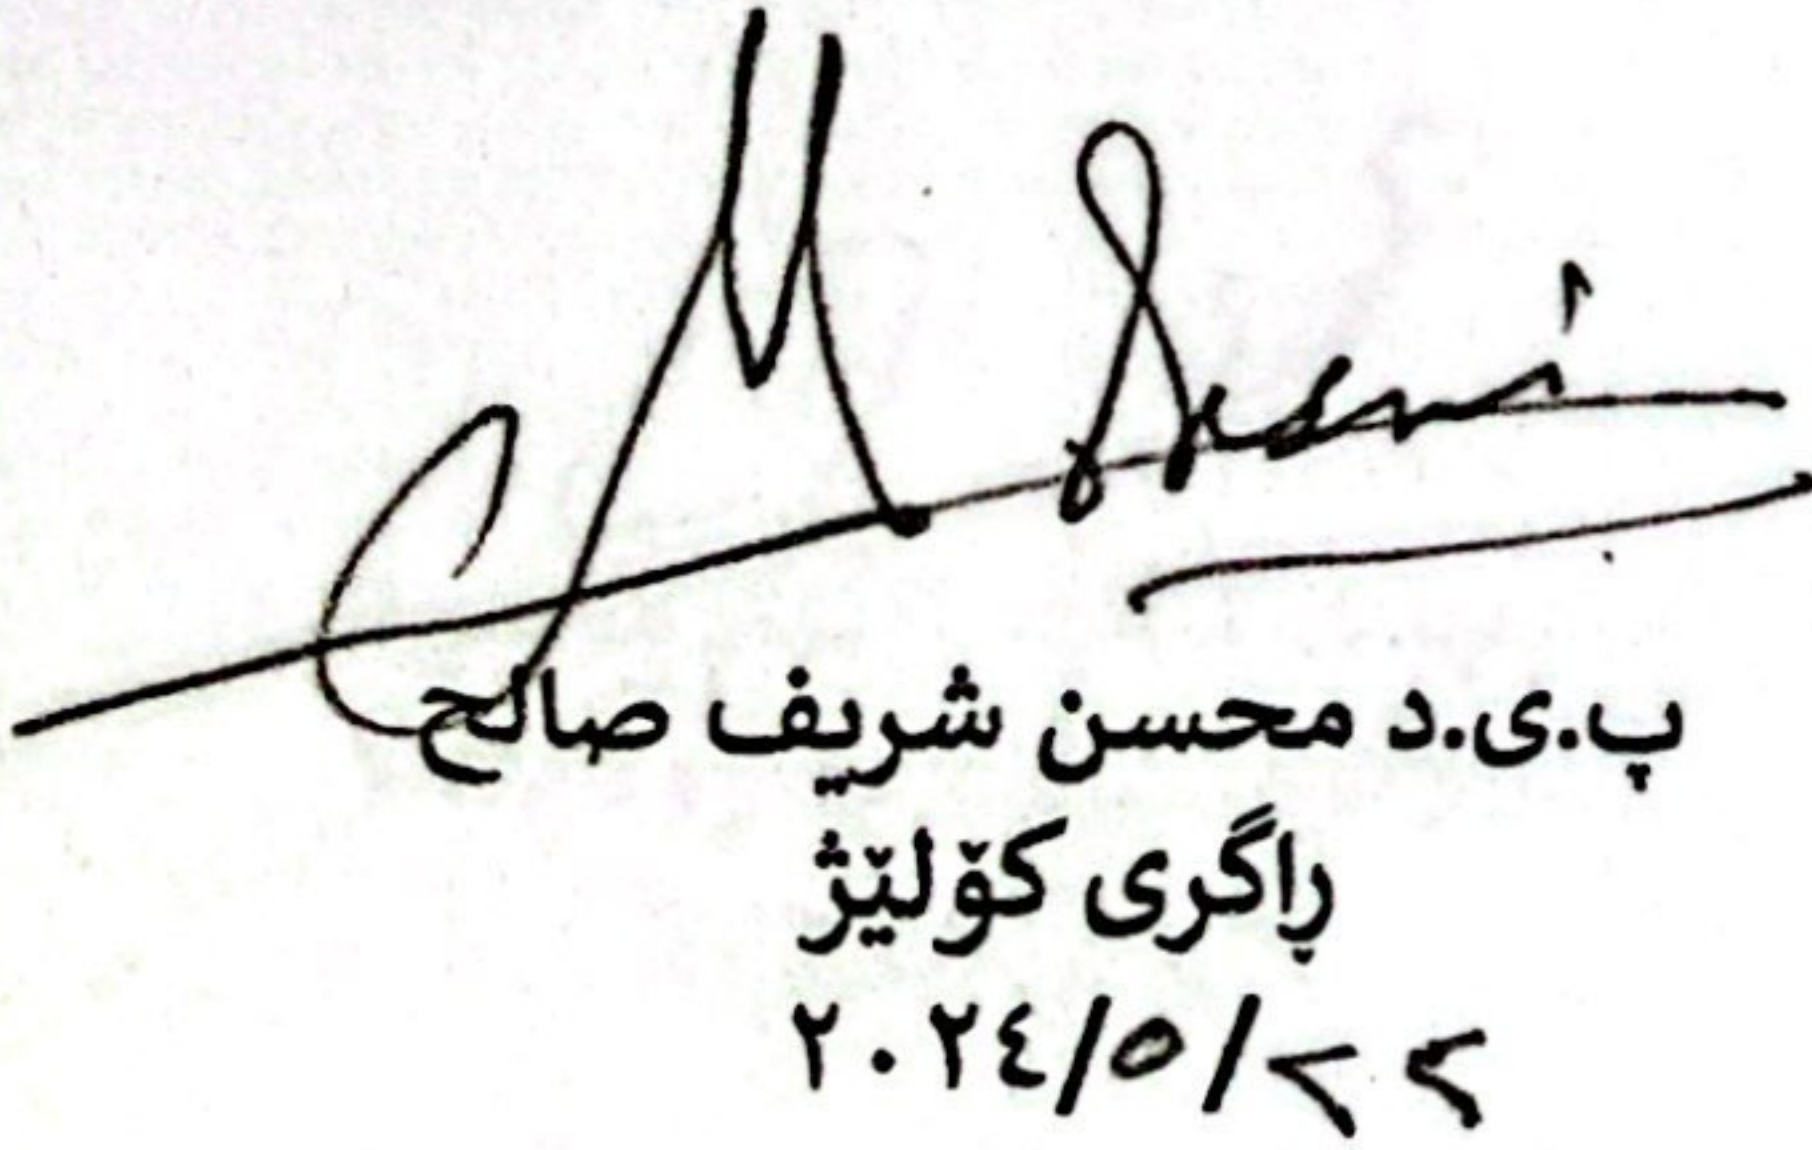 پ.ی.د محسن شریف صالح
ڕاگری کۆلێژ
٢٠٢٤/٥/٢٢